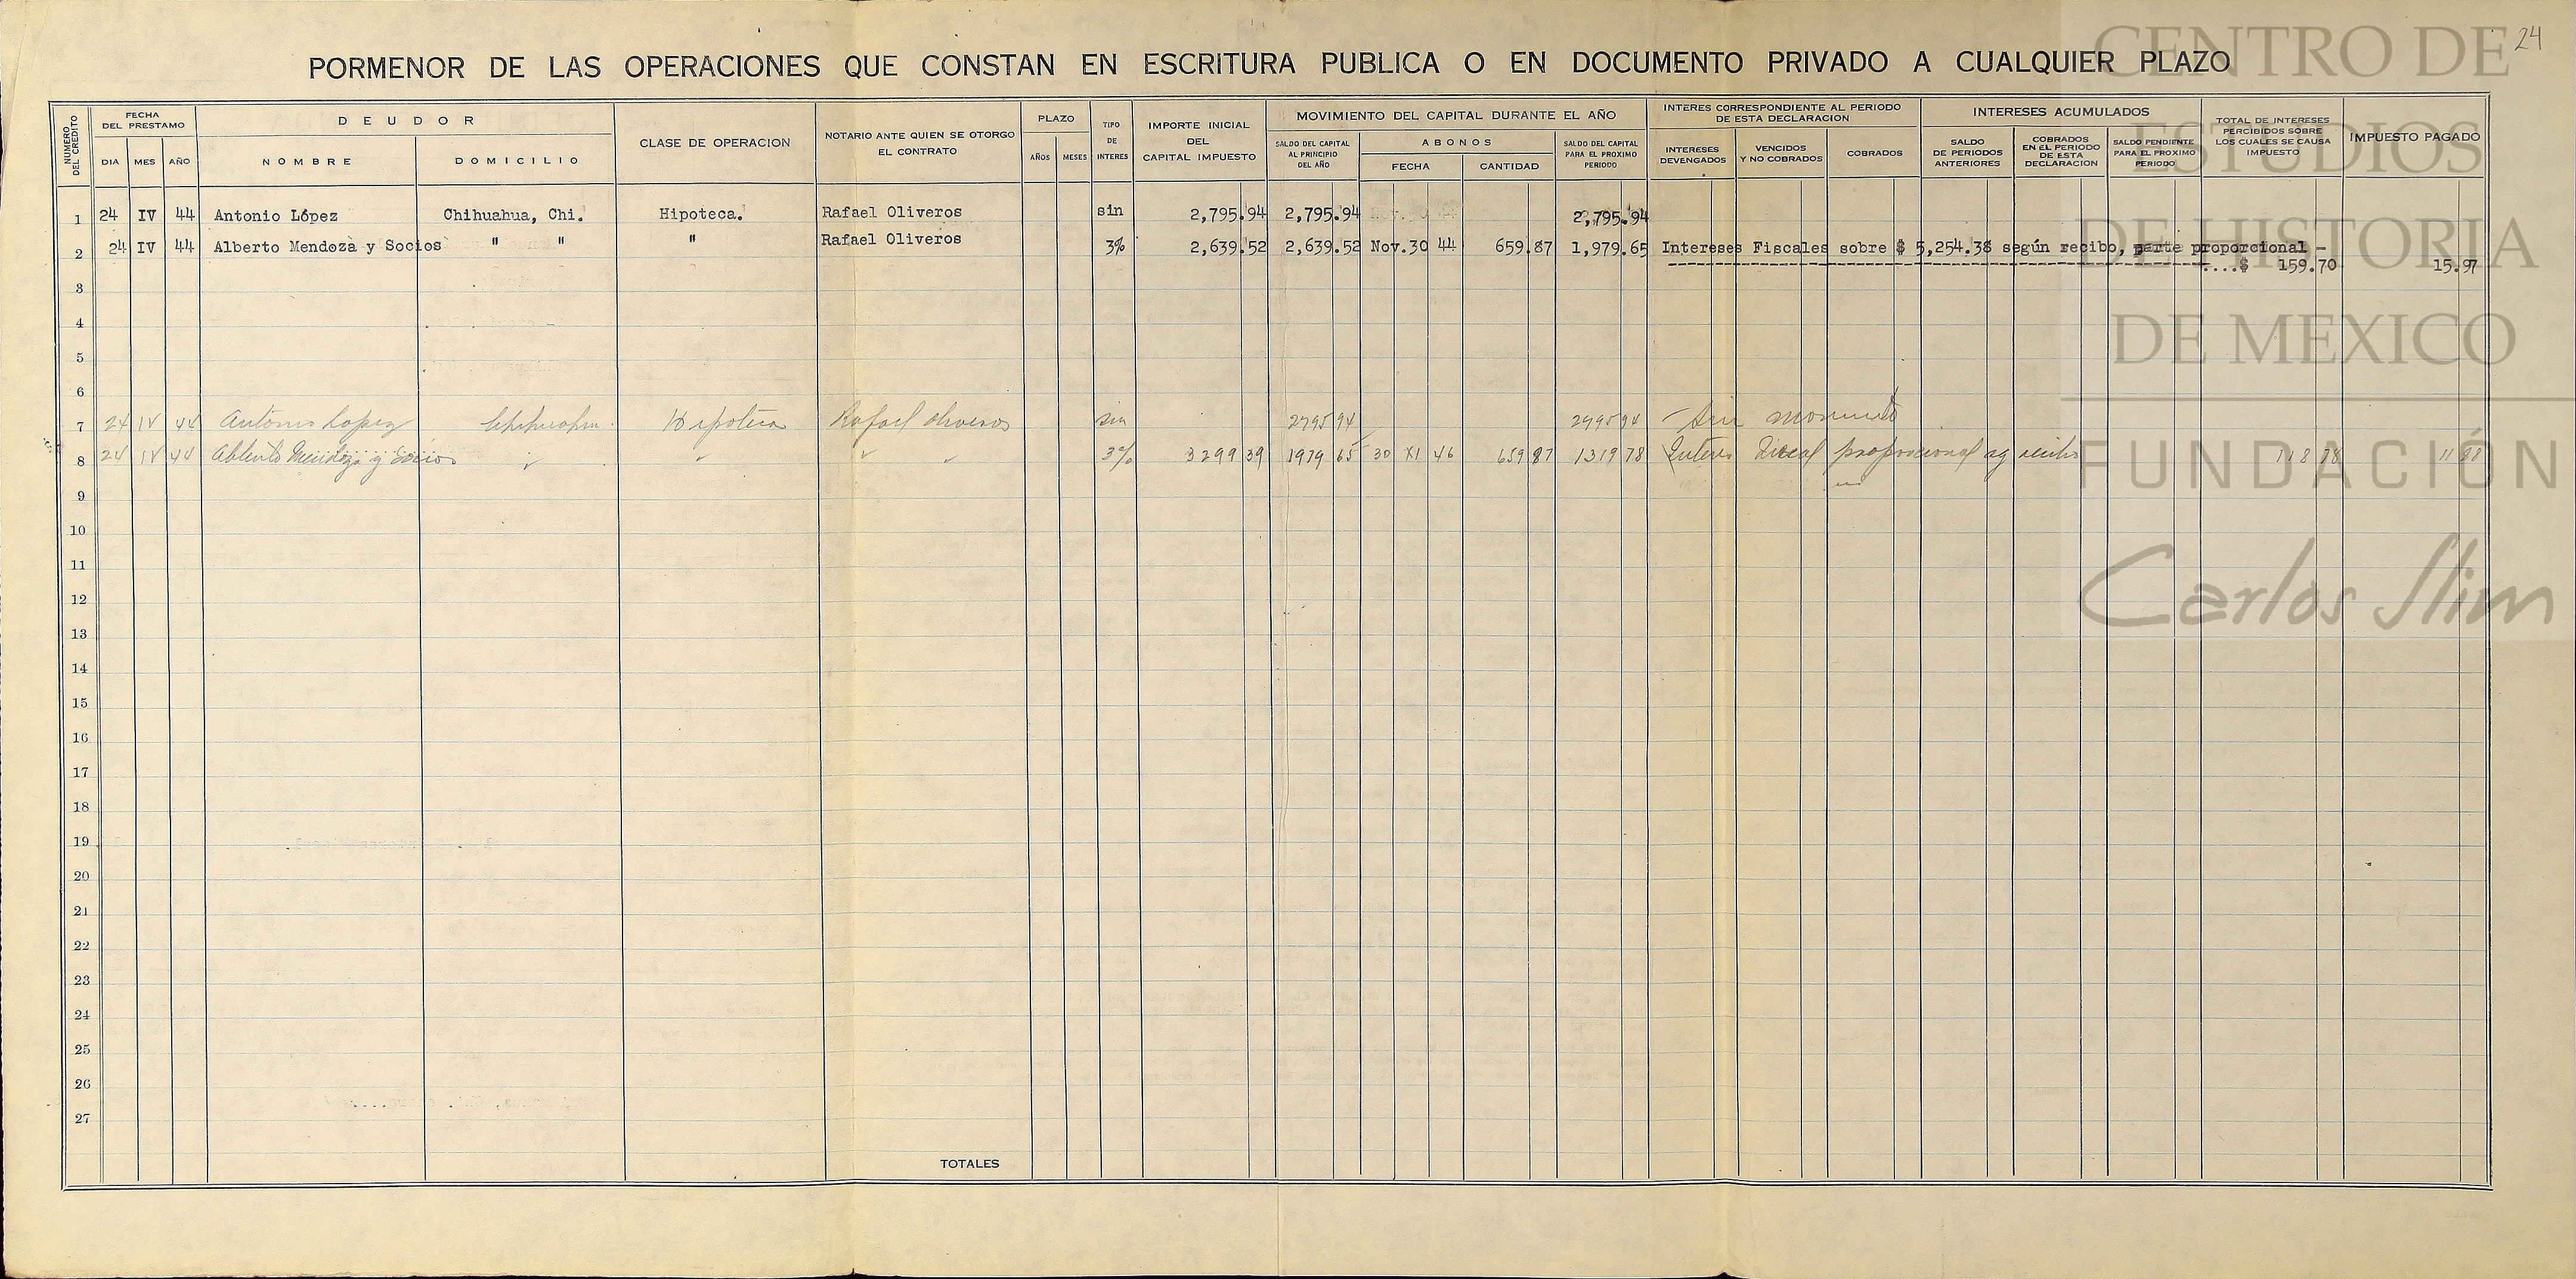 24
PORMENOR DE LAS OPERACIONES QUE CONSTAN EN ESCRITURA PUBLICA O EN DOCUMENTO PRIVADO A CUALQUIER PLAZO
NUMERO DEL CREDITO
FECHA DEL PRESTAMO
DIA MES AÑO
DEUDOR
NOMBRE DOMICILIO
CLASE DE OPERACION
NOTARIO ANTE QUIEN SE OTORGO EL CONTRATO
PLAZO
AÑOS MESES
TIPO DE INTERES
IMPORTE INICIAL DEL CAPITAL IMPUESTO
MOVIMIENTO DEL CAPITAL DURANTE EL AÑO
SALDO DEL CAPITAL AL PRINCIPIO DEL AÑO
ABONOS
FECHA CANTIDAD
SALDO DEL CAPITAL PARA EL PROXIMO PERIODO
INTERES CORRESPONDIENTE AL PERIODO DE ESTA DECLARACION
INTERESES DEVENGADOS
VENCIDOS Y NO COBRADOS
COBRADOS
INTERESES ACUMULADOS
SALDO DE PERIODOS ANTERIORES
COBRADOS EN EL PERIODO DE ESTA DECLARACION
SALDO PENDIENTE PARA EL PROXIMO PERIODO
TOTAL DE INTERESES PERCIBIDOS SOBRE LOS CUALES SE CAUSA IMPUESTO
IMPUESTO PAGADO
1 24 IV 44 Antonio López Chihuahua, Chi. Hipoteca. Rafael Oliveros sin 2,795.94 2,795.94 2,795.94
2 24 IV 44 Alberto Mendoza y Socios " " " Rafael Oliveros 3% 2,639.52 2,639.52 Nov.30 44 659.87 1,979.65 Intereses Fiscales sobre $ 5,254.38 según recibo, parte proporcional -
....$ 159.70 15.97
3
4
5
6
7 24 IV 44 Antonio Lopez Chihuahua. Hipoteca Rafael Oliveros sin 2795 94 2795 94 Sin
8 24 IV 44 Alberto Mendoza y Socios " " " " 3% 3299 39 1979 65 30 XI 46 659 87 1319 78 Interes Fiscal proporcional sg recibo 118 78 11 88
9
10
11
12
13
14
15
16
17
18
19
20
21
22
23
24
25
26
27
TOTALES
CENTRO DE
ESTUDIOS
DE HISTORIA
DE MEXICO
FUNDACIÓN
Carlos Slim